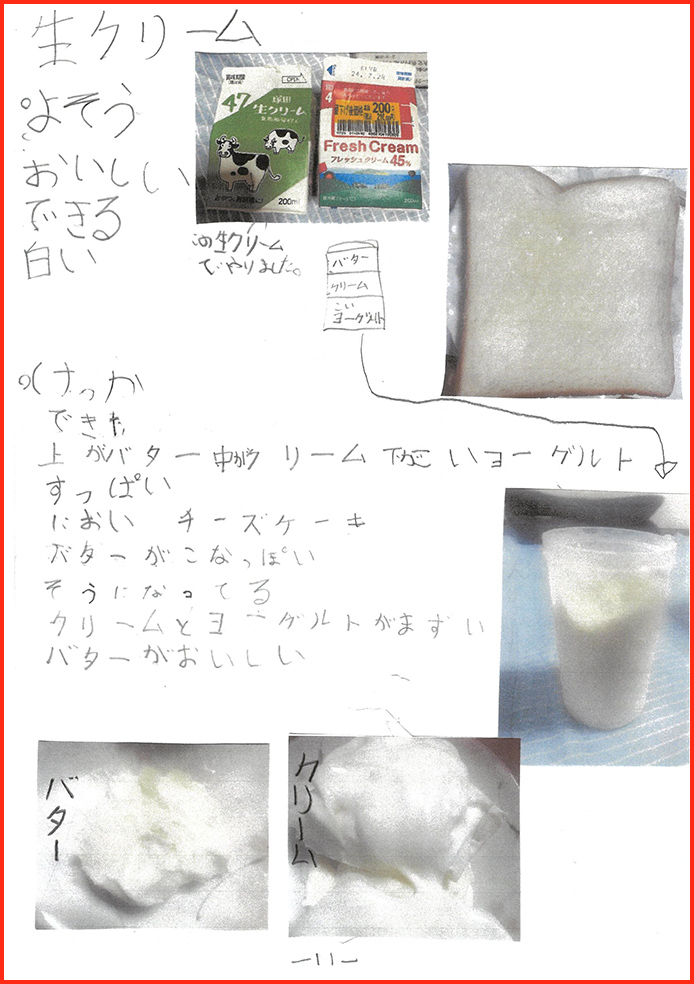 生クリーム
○よそう
おいしい
できる
白い
賞味期限
OPEN
47
塚田
生クリーム
200ml
24.7.28
200
Fresh Cream
フレッシュクリーム45%
この生クリーム
でやりました。
バター
クリーム
こい
ヨーグルト
○けっか
できた
上がバター中がクリーム下がこいヨーグルト
すっぱい
におい チーズケーキ
バターがこなっぽい
そうになってる
クリームとヨーグルトがまずい
バターがおいしい
バター
クリーム
-11-